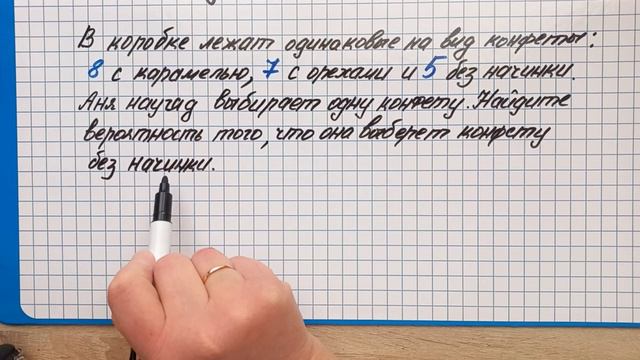 В коробке лежат одинаковые на вид конфеты:
8 с карамелью, 7 с орехами и 5 без начинки.
Аня наугад выбирает одну конфету. Найдите
вероятность того, что она выберет конфету
без начинки.